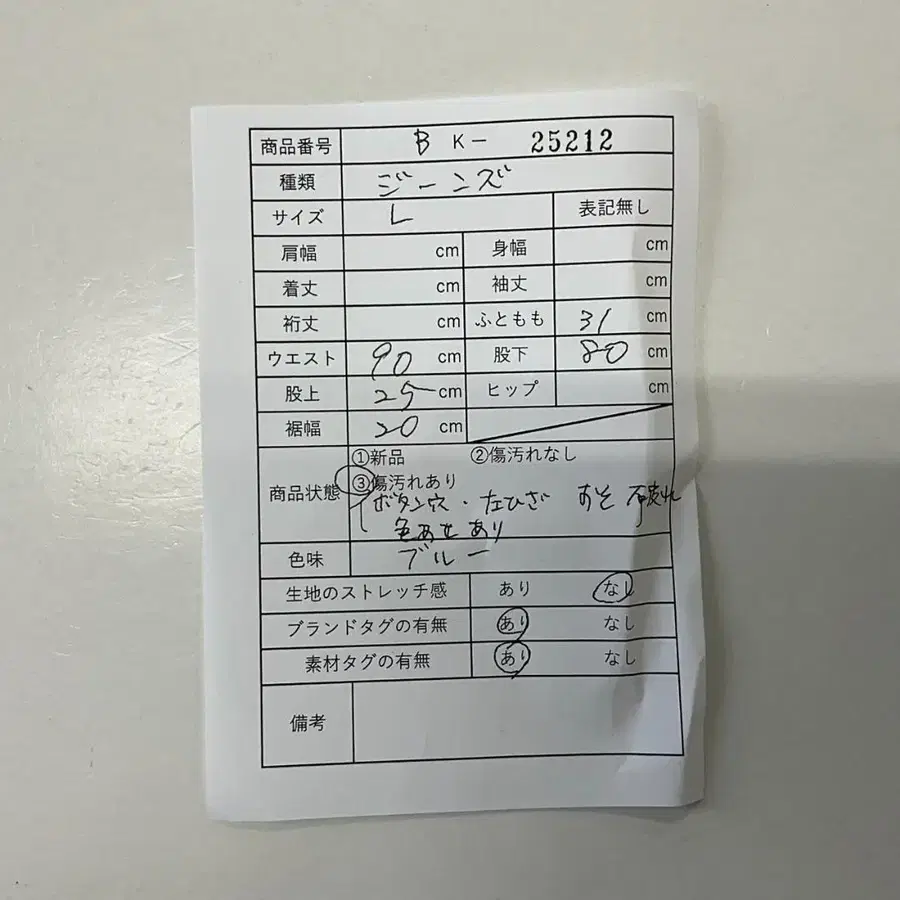 商品番号 B K- 25212
種類 ジーンズ
サイズ L 表記無し
肩幅 cm 身幅 cm
着丈 cm 袖丈 cm
裄丈 cm ふともも 31 cm
ウエスト 90 cm 股下 80 cm
股上 25 cm ヒップ cm
裾幅 20 cm
商品状態 ①新品 ②傷汚れなし
③傷汚れあり
ボタン穴・左ひざ すそ 破れ
色あせあり
色味 ブルー
生地のストレッチ感 あり なし
ブランドタグの有無 あり なし
素材タグの有無 あり なし
備考